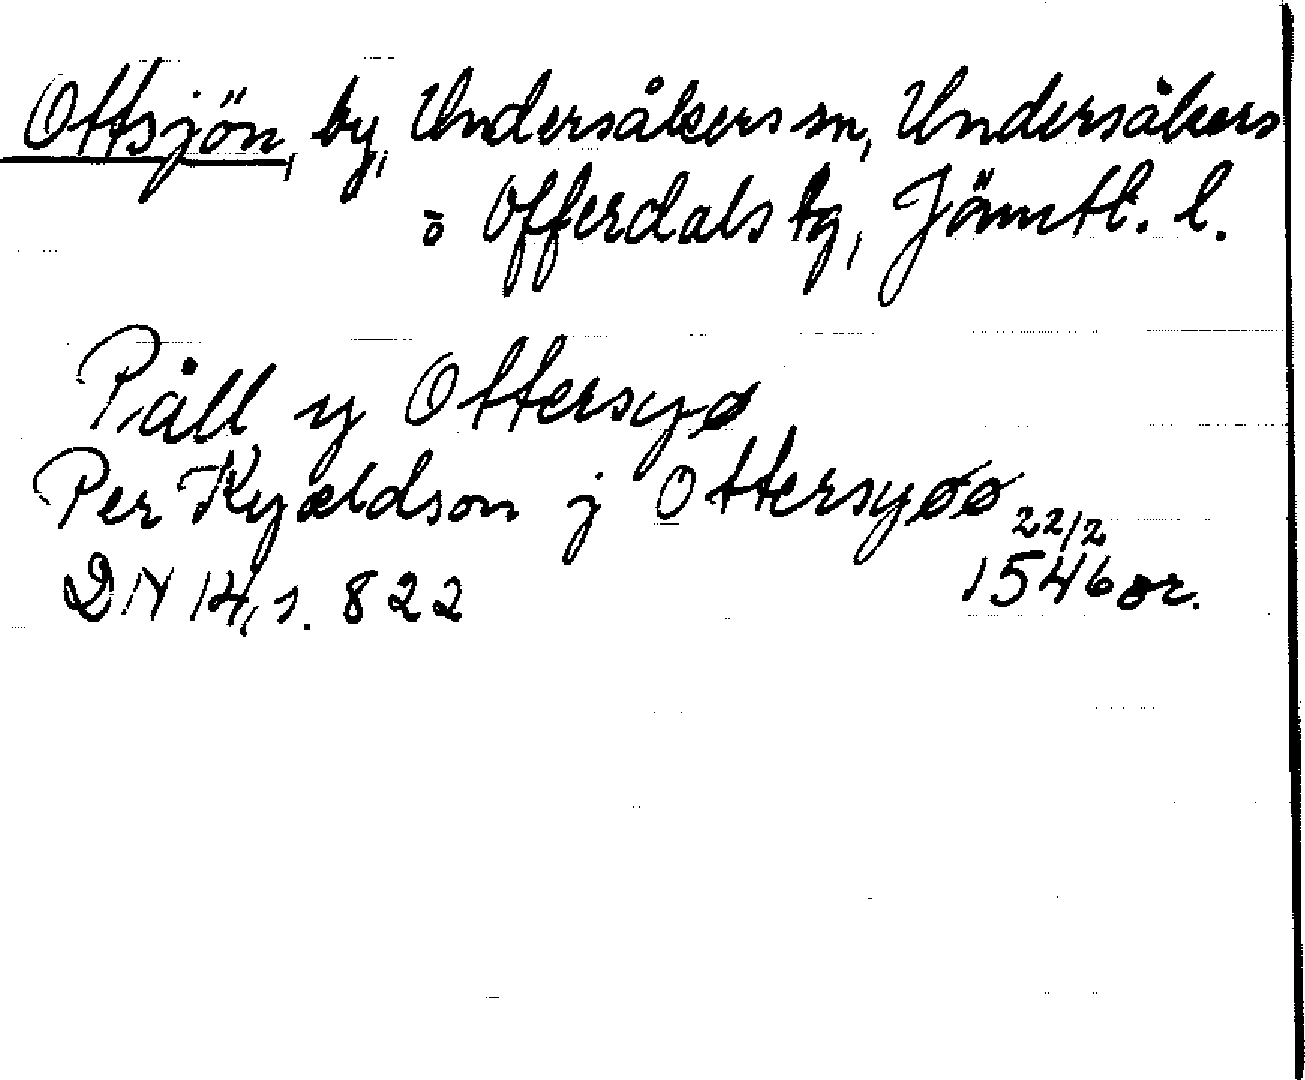 Ottsjön, by, Undersåkers sn, Undersåkers
o Offerdals tg, Jämtl. l.
Påll y Ottersyø
Per Kyældson j Ottersyøø
22/2
DN 14, s. 822 1546 or.